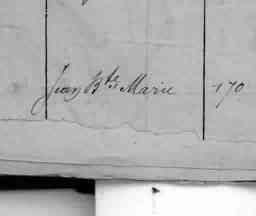 Jean Bte Marie 170